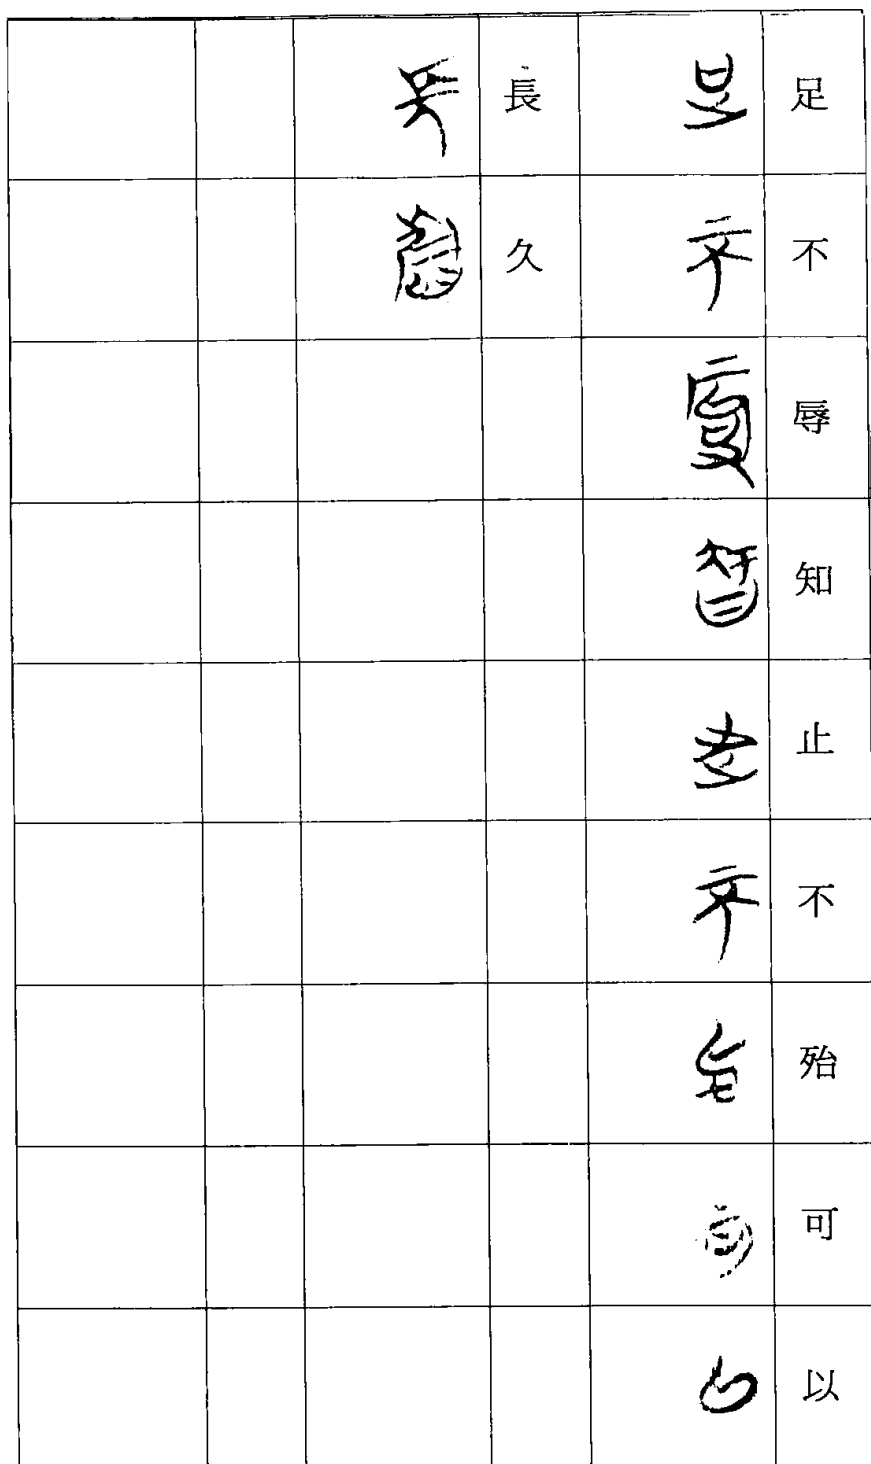 足不辱知止不殆可以
長久